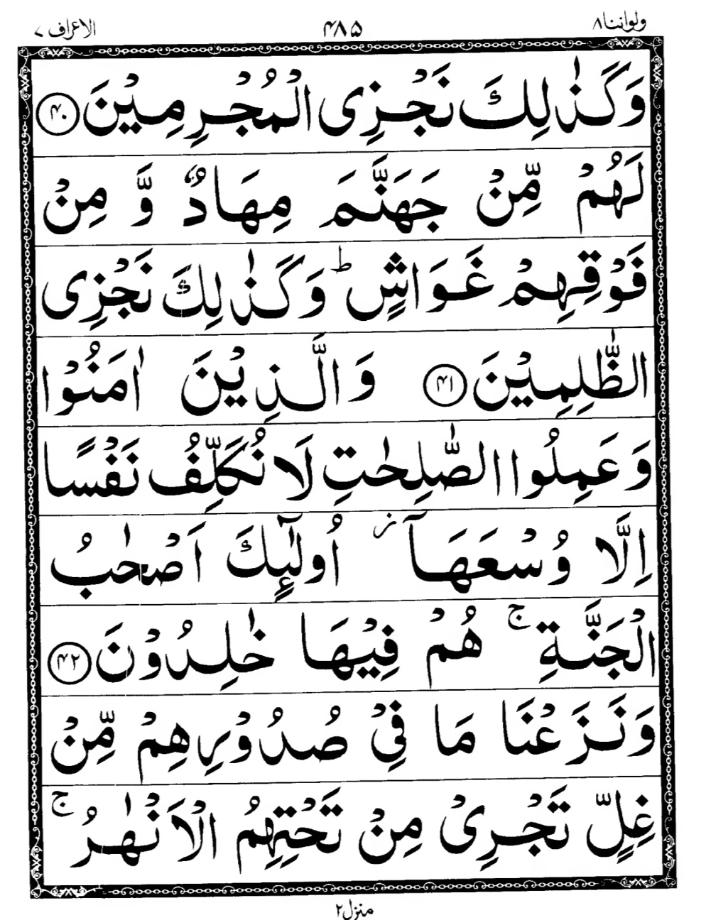 ولواننا٨ ۴۸۵ الاعراف ٧
وَكَذٰلِكَ نَجْزِی الْمُجْرِمِيْنَ ۴۰
لَهُمْ مِّنْ جَهَنَّمَ مِهَادٌ وَّ مِنْ
فَوْقِهِمْ غَوَاشٍ ؕ وَكَذٰلِكَ نَجْزِی
الظّٰلِمِيْنَ ۴۱ وَالَّذِيْنَ اٰمَنُوْا
وَعَمِلُوا الصّٰلِحٰتِ لَا نُكَلِّفُ نَفْسًا
اِلَّا وُسْعَهَاۤ ؗ اُولٰٓئِكَ اَصْحٰبُ
الْجَنَّةِ ۚ هُمْ فِيْهَا خٰلِدُوْنَ ۴۲
وَنَزَعْنَا مَا فِیْ صُدُوْرِهِمْ مِّنْ
غِلٍّ تَجْرِیْ مِنْ تَحْتِهِمُ الْاَنْهٰرُ ۚ
منزل٢